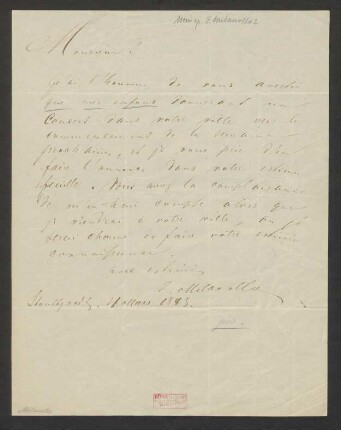 Monsieur!
j'ai l'honneur de vous avertir
que mes enfans donneront un
Concert dans votre ville vers le
commencement de la semaine
prochaine, et je vous prie d'en
faire l'annonce dans votre estimée
feuille. Vous avez la complaisance
de m'en tenir compte alors que
je viendrai à votre ville, où je
serai charmé de faire votre
connaissance.
Milanollo
Stuttgart, Mars 1843.
Milanollo